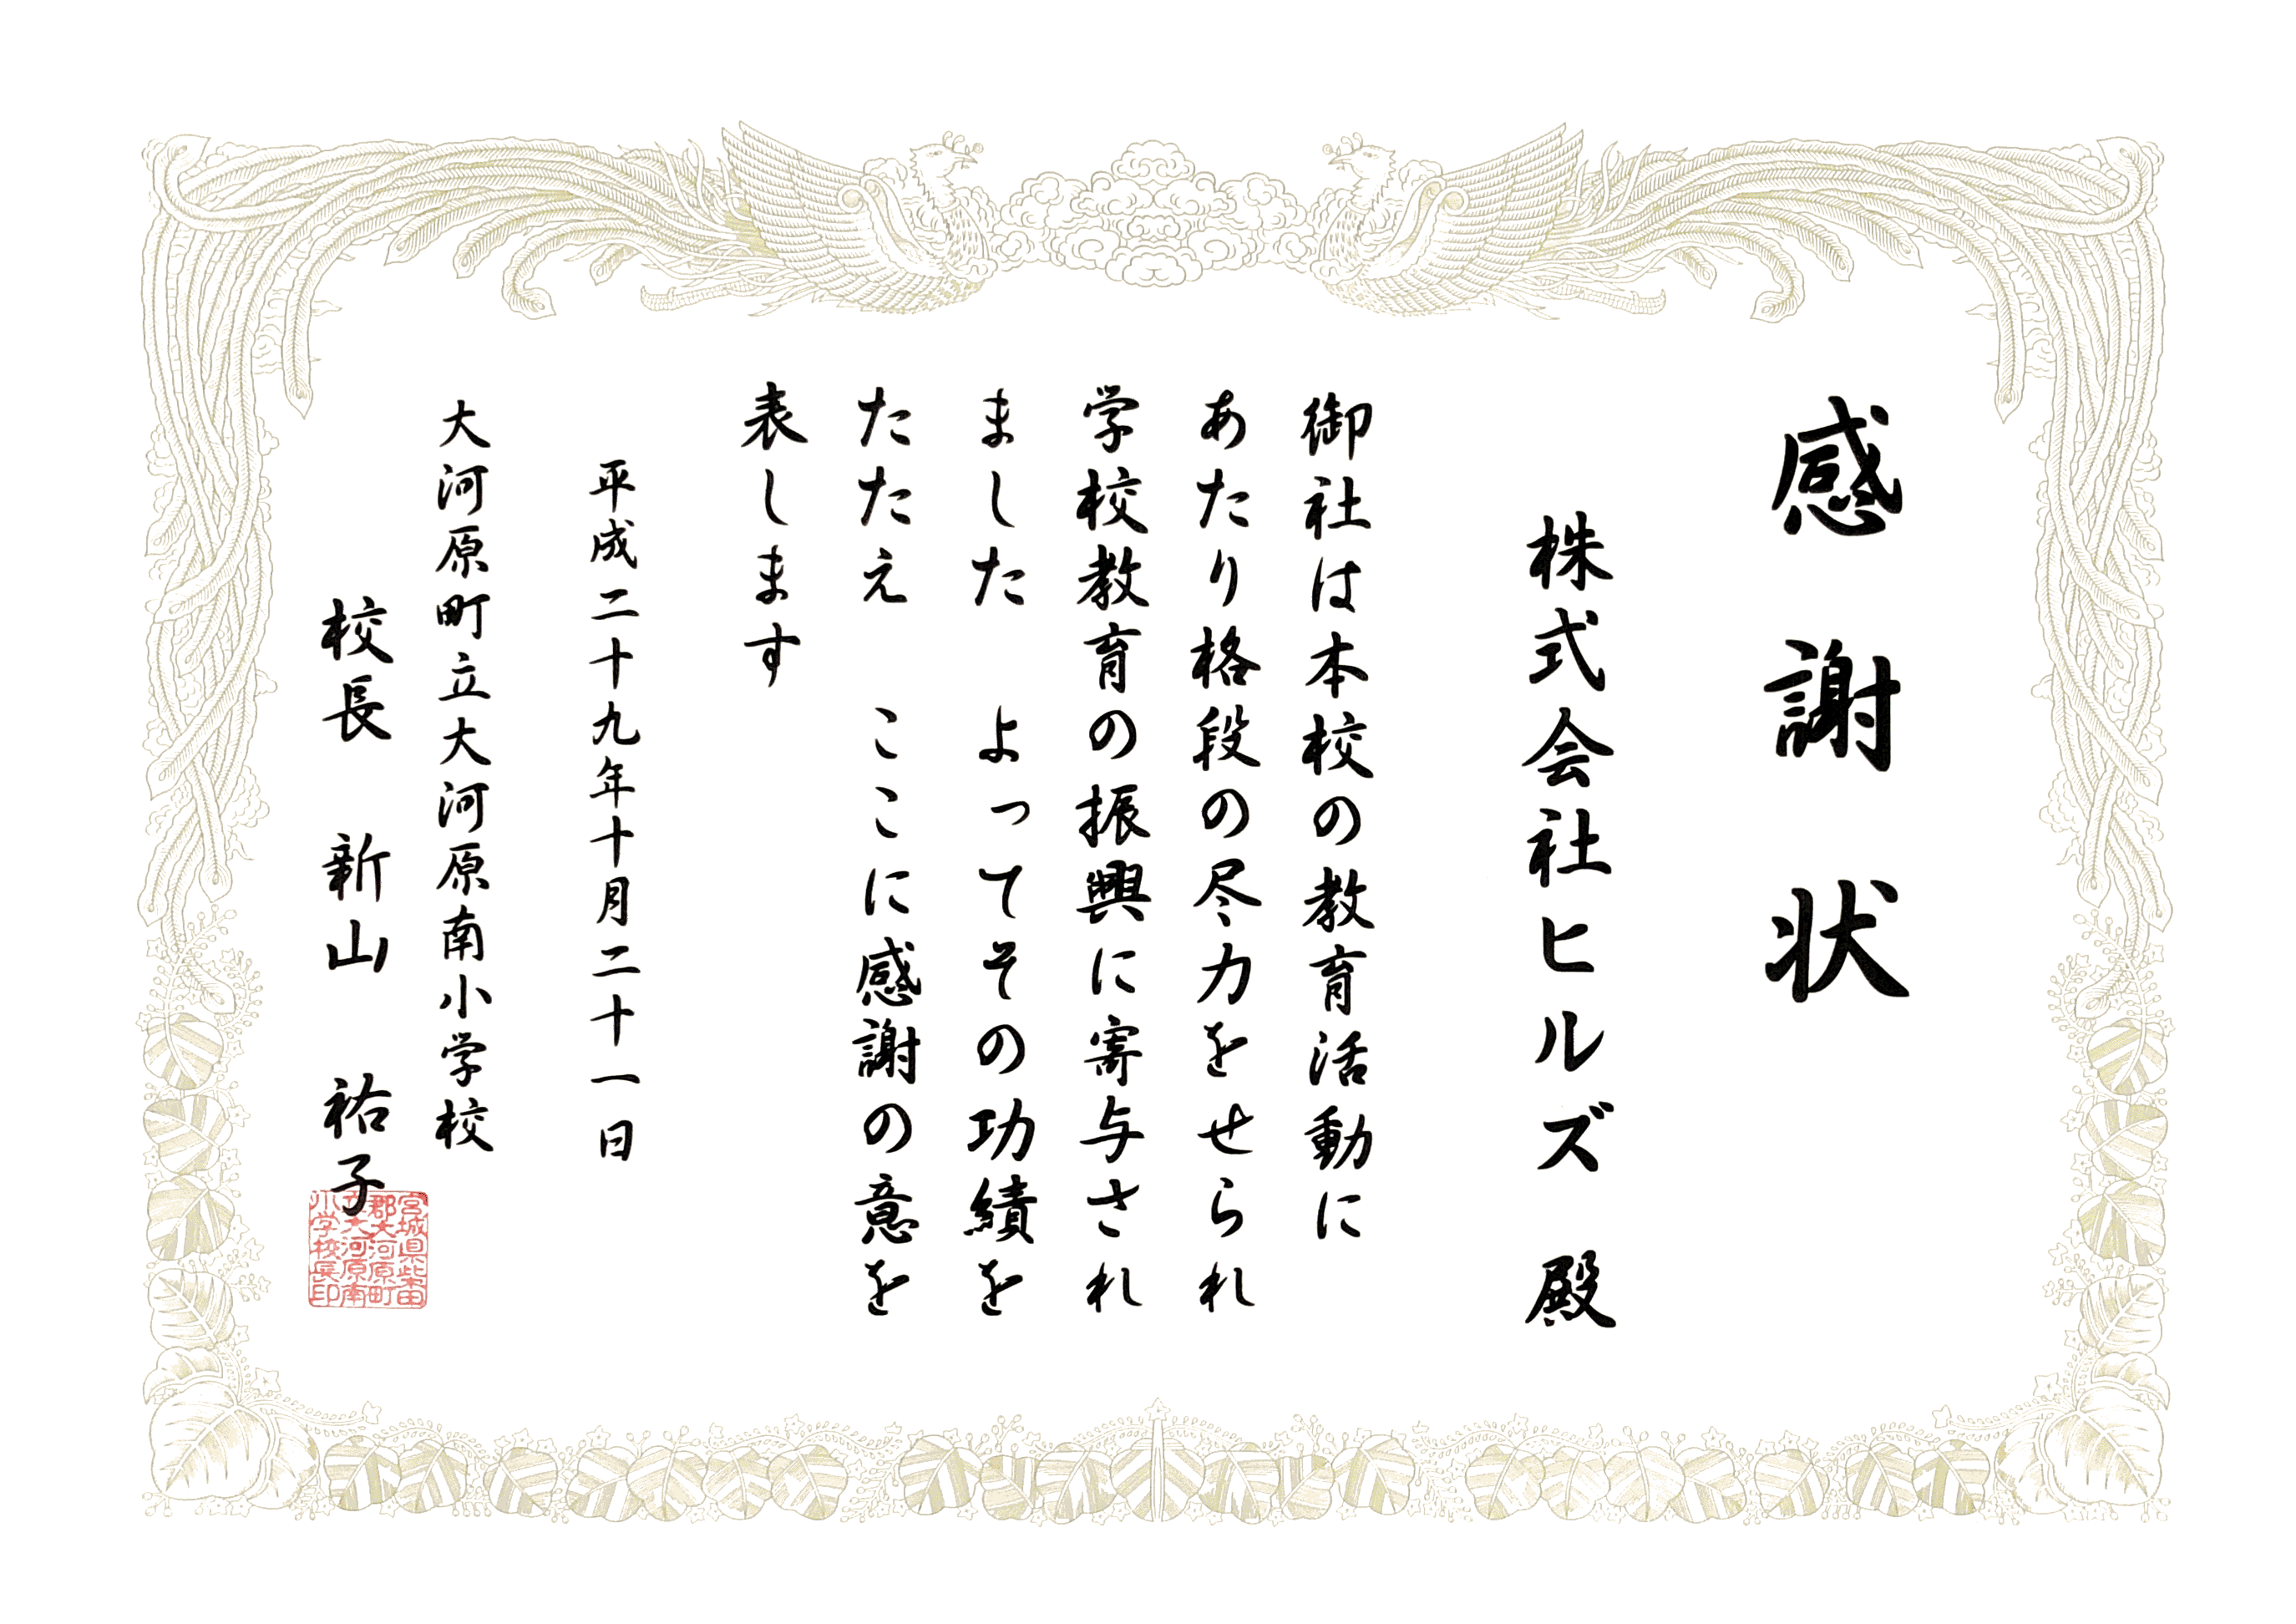 感謝状
株式会社ヒルズ 殿
御社は本校の教育活動に
あたり格段の尽力をせられ
学校教育の振興に寄与され
ました よってその功績を
たたえ ここに感謝の意を
表します
平成二十九年十月二十一日
大河原町立大河原南小学校
校長 新山 祐子
宮城県柴田
郡大河原町
立大河原南
小学校長印